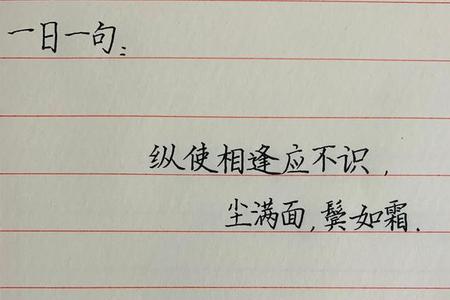 一日一句：
纵使相逢应不识，
尘满面，鬓如霜．